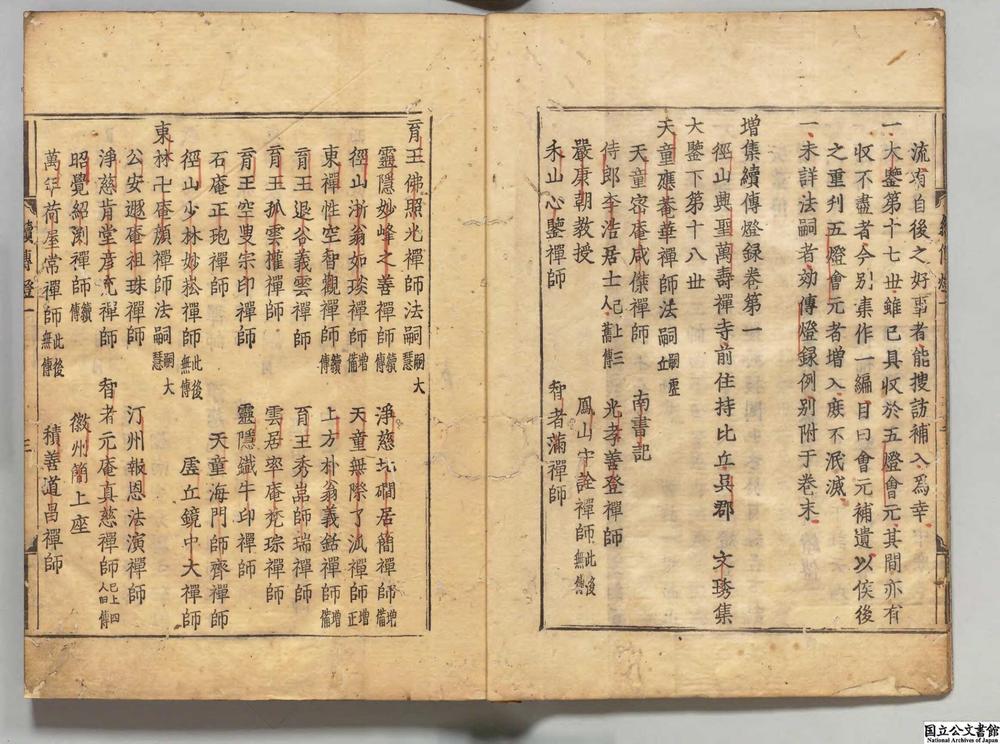 流有自後之好事者能搜訪補入爲幸
一大鑒第十七世雖已具收於五燈會元其間亦有
收不盡者今別集作一編目曰會元補遺以俟後
之重刋五燈會元者增入庶不泯滅
一未詳法嗣者効傳燈録例別附于卷末
增集續傳燈録卷第一
徑山興聖萬壽禪寺前住持比丘吳郡 文琇集
大鑒下第十八世
天童應菴華禪師法嗣嗣虎丘
天童密庵咸傑禪師 南書記
侍郎李浩居士已上三人舊傳 光孝善登禪師
嚴康朝教授 鳳山守詮禪師此後無傳
禾山心鑒禪師 智者滿禪師
續傳燈一
育王佛照光禪師法嗣嗣大慧
靈隱妙峰之善禪師續傳 淨慈北磵居簡禪師增備
徑山浙翁如琰禪師增備 天童無際了派禪師增正
東禪性空智觀禪師續傳 上方朴翁義銛禪師增備
育王退谷義雲禪師 育王秀嵓師瑞禪師
育王孤雲權禪師 雲居率庵梵琮禪師
育王空叟宗印禪師 靈隱鐵牛印禪師
石庵正玸禪師 天童海門師齊禪師
徑山少林妙崧禪師此後無傳 虎丘鏡中大禪師
東林卍庵顏禪師法嗣嗣大慧
公安遯庵祖珠禪師 汀州報恩法演禪師
淨慈肯堂彥充禪師 智者元庵真慈禪師已上四人旧傳
昭覺紹淵禪師續傳 徽州簡上座
萬年荷屋常禪師此後無傳 積善道昌禪師
国立公文書館
National Archives of Japan